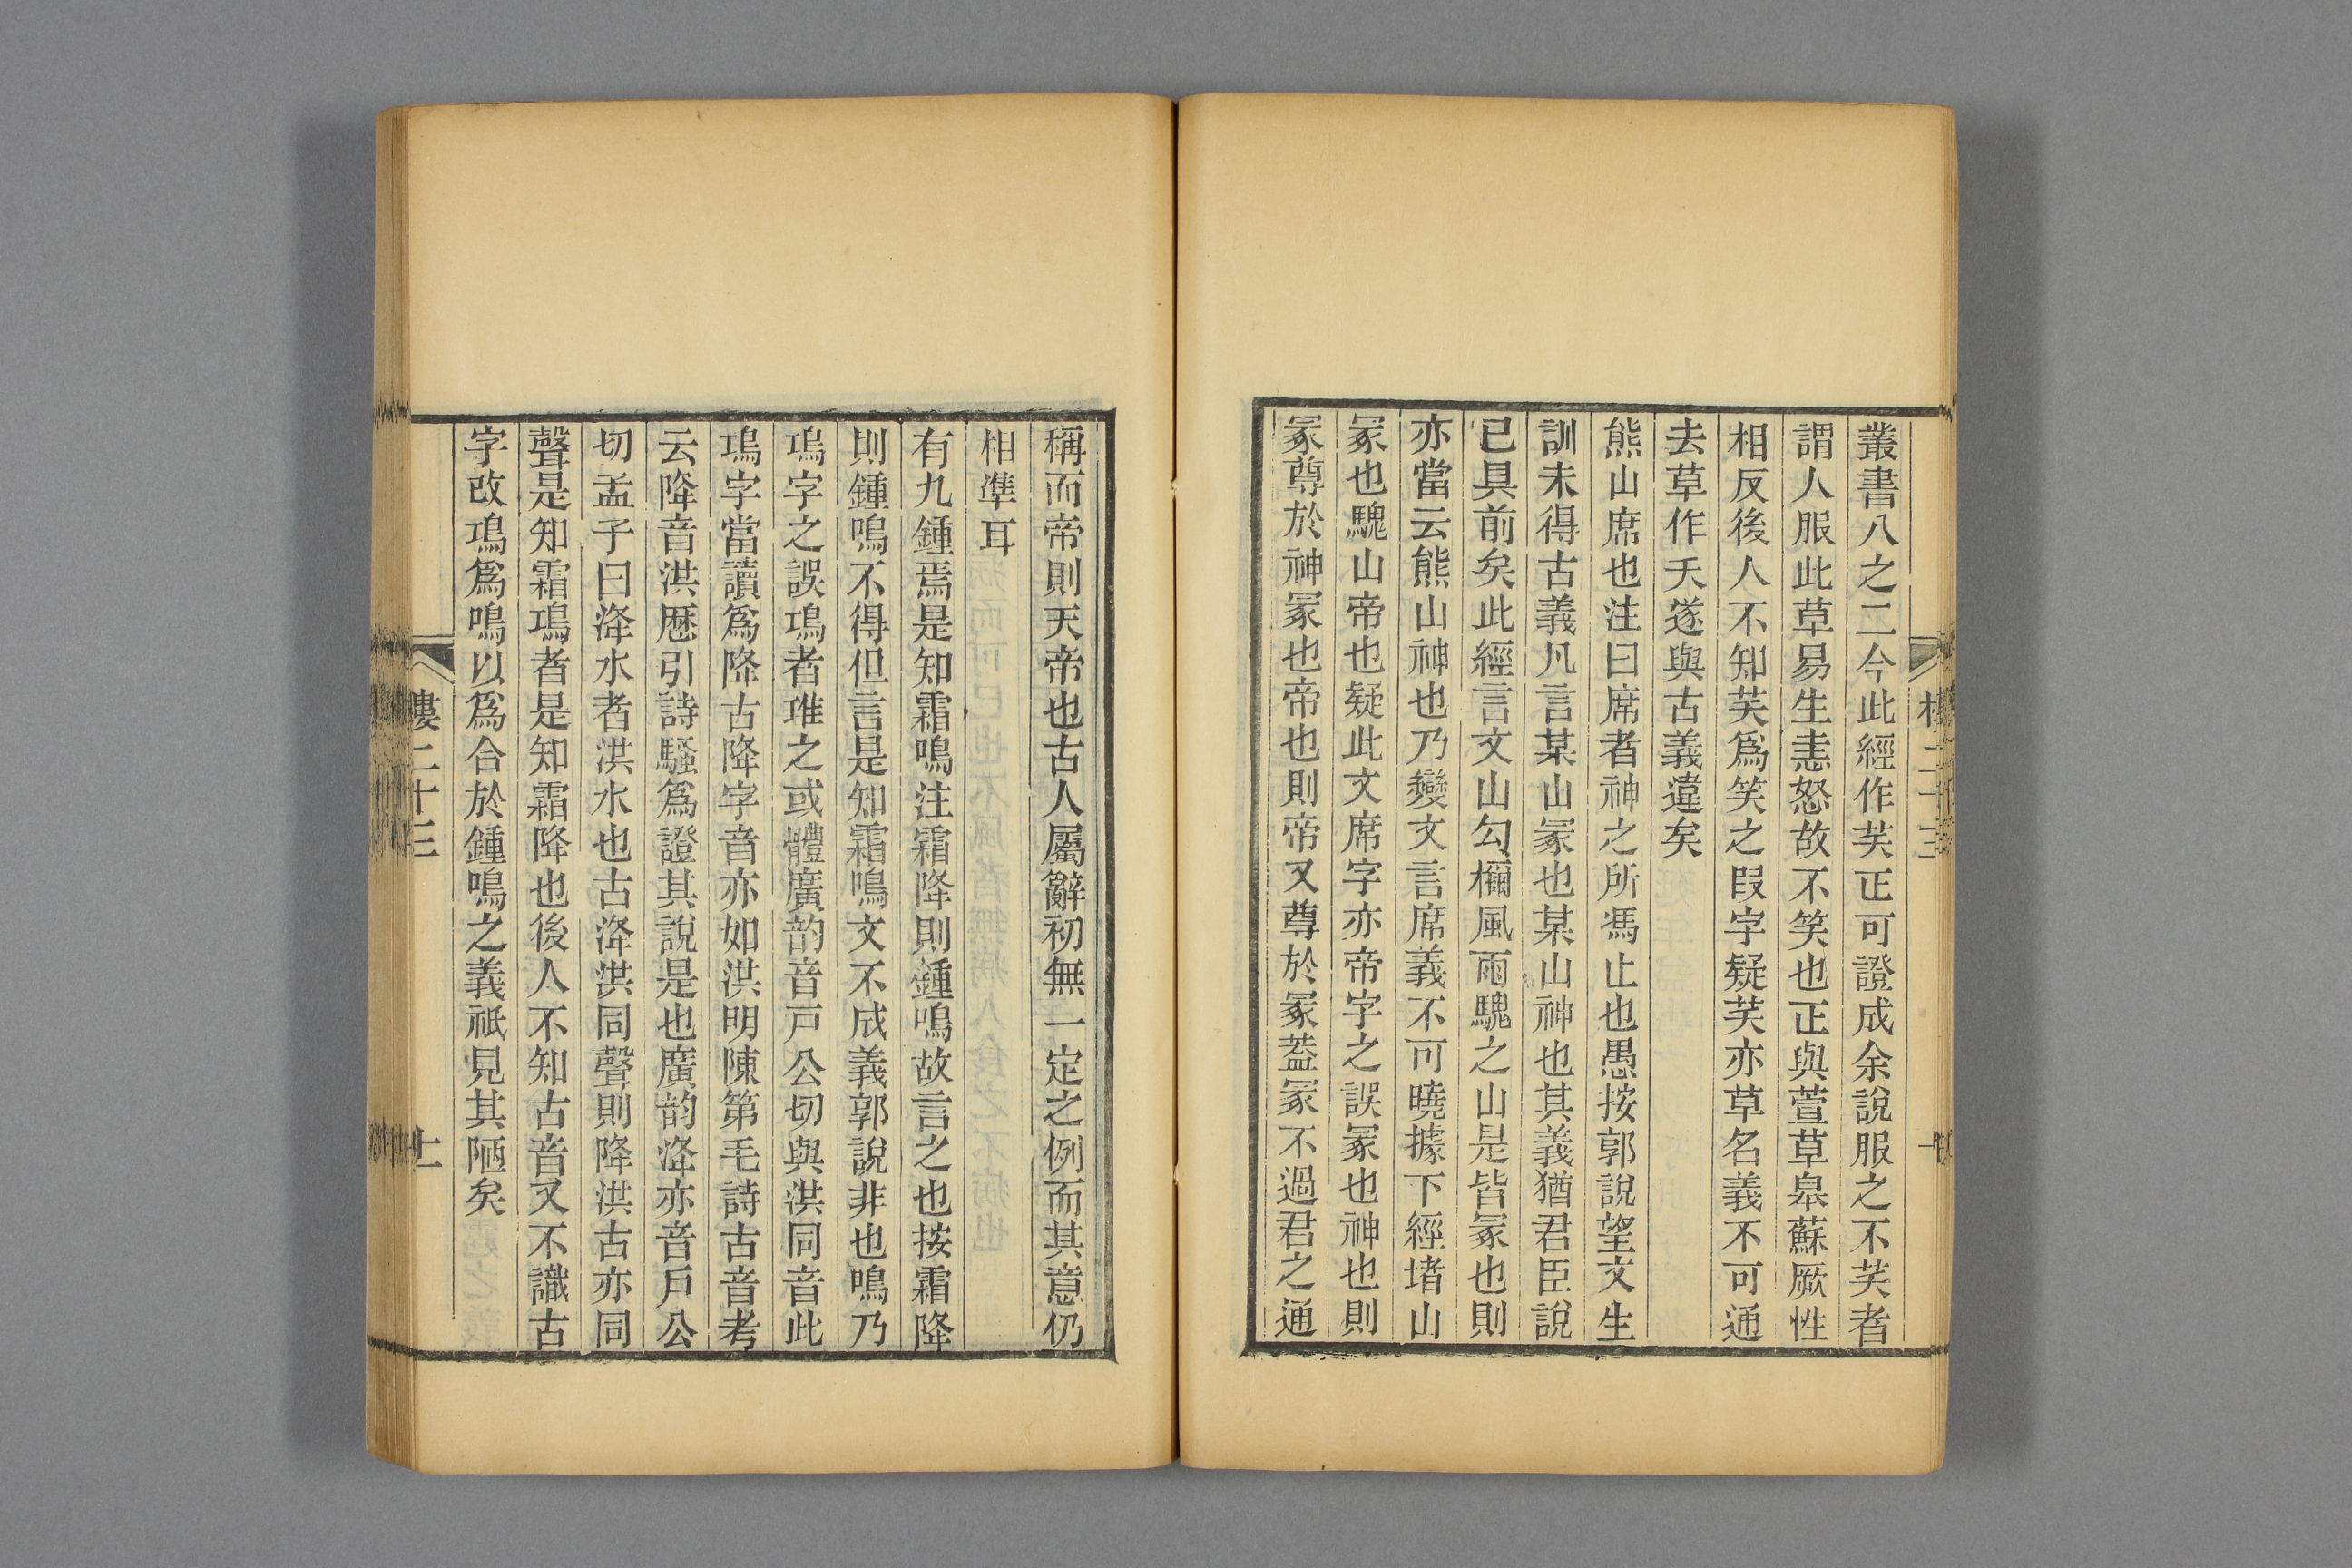 叢書八之二今此經作芺正可證成余說服之不芺者
謂人服此草易生恚怒故不笑也正與萱草皋蘇厥性
相反後人不知芺爲笑之叚字疑芺亦草名義不可通
去草作天遂與古義違矣
熊山席也注曰席者神之所馮止也愚按郭說望文生
訓未得古義凡言某山冢也某山神也其義猶君臣說
已具前矣此經言文山勾檷風雨騩之山是皆冢也則
亦當云熊山神也乃變文言席義不可曉據下經堵山
冢也騩山帝也疑此文席字亦帝字之誤冢也神也則
冢尊於神冢也帝也則帝又尊於冢葢冢不過君之通
稱而帝則天帝也古人屬辭初無一定之例而其意仍
相準耳
有九鍾焉是知霜鳴注霜降則鍾鳴故言之也按霜降
則鍾鳴不得但言是知霜鳴文不成義郭說非也鳴乃
鳿字之誤鳿者琟之或體廣韵音戸公切與洪同音此
鳿字當讀爲降古降字音亦如洪明陳第毛詩古音考
云降音洪歷引詩騷爲證其說是也廣韵洚亦音戶公
切孟子曰洚水者洪水也古洚洪同聲則降洪古亦同
聲是知霜鳿者是知霜降也後人不知古音又不識古
字改鳿爲鳴以爲合於鍾鳴之義祇見其陋矣
樓二十三
十一